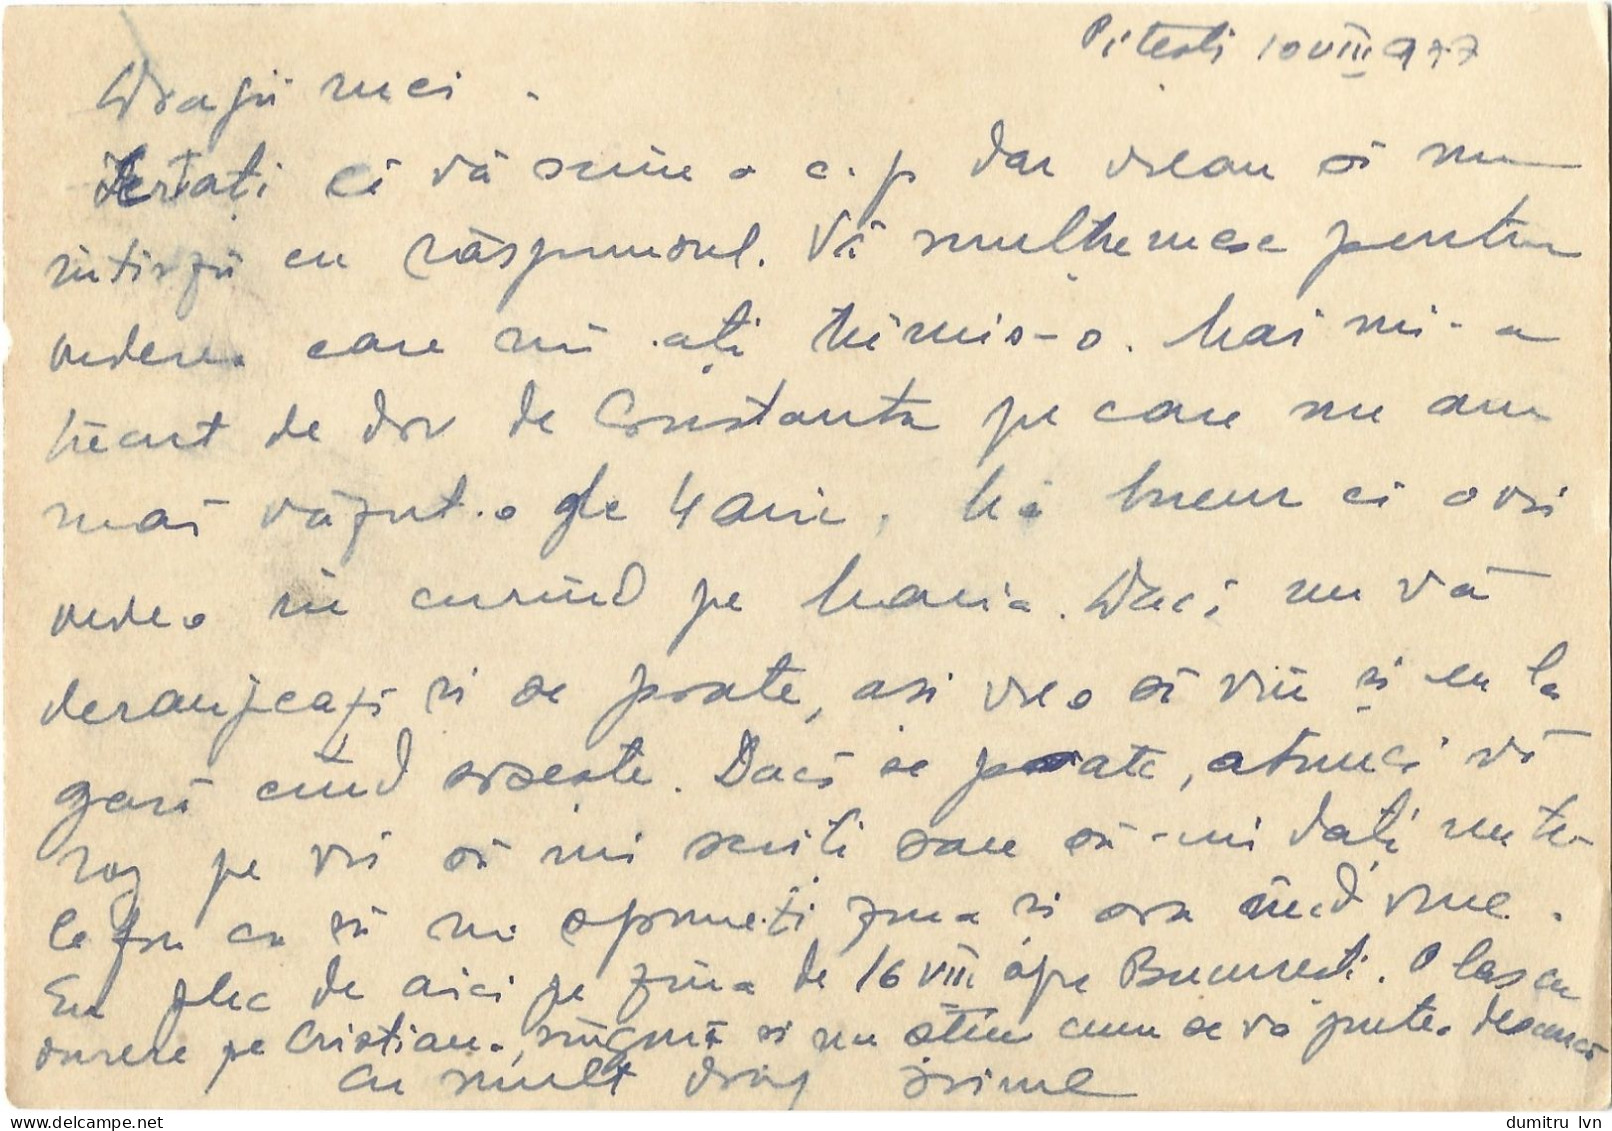 Pitesti 10 VIII 977
Dragii mei.
Iertați că vă scriu o c.p dar vreau să nu
întîrzii cu răspunsul. Vă mulțumesc pentru
vederea care mi ați trimis-o. Mai mi-a
trecut de dor de Constanta pe care nu am
mai văzut-o de 4 ani. Mă bucur că o voi
vedea în curînd pe Maria. Dacă nu vă
deranjează și se poate, asi vrea să viu și eu la
gară cînd sosește. Dacă se poate, atunci vă
rog pe voi să mi scriti sau să-mi dați un te-
lefon ca să mi spuneți ziua si ora cînd vine.
Eu plec de aici pe ziua de 16 VIII spre Bucuresti. O las cu
durere pe Cristiana, singură si nu știu cum se va putea descurca
cu mult drag
dumitru_lvn